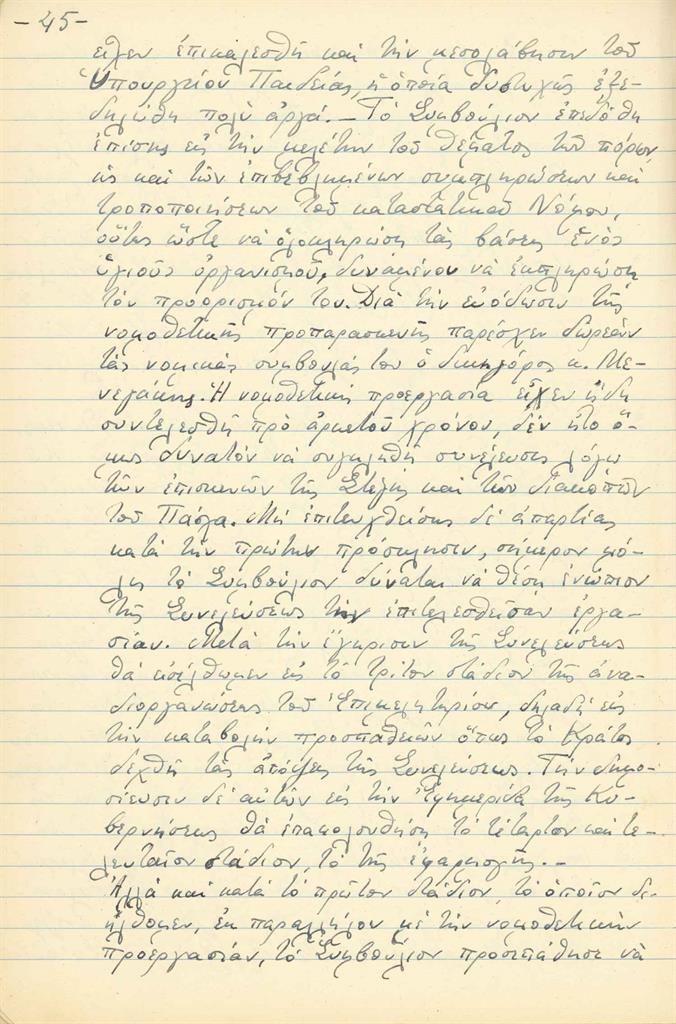 -45-
εἶχεν ἐπικαλεσθῆ καὶ τὴν μεσολάβησιν τοῦ
Ὑπουργείου Παιδείας, ἡ ὁποία δυστυχῶς ἐξε-
δηλώθη πολὺ ἀργά.- Τὸ Συμβούλιον ἐπεδόθη
ἐπίσης εἰς τὴν μελέτην τοῦ θέματος τῶν πόρων,
ὡς καὶ τῶν ἐπιβεβλημένων συμπληρώσεων καὶ
τροποποιήσεων τοῦ καταστατικοῦ Νόμου,
οὕτως ὥστε νὰ ὁλοκληρώσῃ τὰς βάσεις ἑνὸς
ὑγιοῦς ὀργανισμοῦ, δυναμένου νὰ ἐκπληρώσῃ
τὸν προορισμόν του. Διὰ τὴν εὐόδωσιν τῆς
νομοθετικῆς προπαρασκευῆς παρέσχεν δωρεὰν
τὰς νομικὰς συμβουλάς του ὁ δικηγόρος κ. Με-
νεγάκης. Ἡ νομοθετικὴ προεργασία εἶχεν ἤδη
συντελεσθῆ πρὸ ἀρκετοῦ χρόνου, δὲν ἦτο ὅ-
μως δυνατὸν νὰ συγκληθῆ συνέλευσις λόγῳ
τῶν ἐπισκευῶν τῆς Στέγης καὶ τῶν διακοπῶν
τοῦ Πάσχα. Μὴ ἐπιτευχθείσης δὲ ἀπαρτίας
κατὰ τὴν πρώτην πρόσκλησιν, σήμερον μό-
λις τὸ Συμβούλιον δύναται νὰ θέσῃ ἐνώπιον
τῆς Συνελεύσεως τὴν ἐπιτελεσθεῖσαν ἐργα-
σίαν. Μετὰ τὴν ἔγκρισιν τῆς Συνελεύσεως
θὰ εἰσέλθωμεν εἰς τὸ τρίτον στάδιον τῆς ἀνα-
διοργανώσεως τοῦ Ἐπιμελητηρίου, δηλαδὴ εἰς
τὴν καταβολὴν προσπαθειῶν ὅπως τὸ Κράτος
δεχθῆ τὰς ἀπόψεις τῆς Συνελεύσεως. Τὴν δημο-
σίευσιν δὲ αὐτῶν εἰς τὴν Ἐφημερίδα τῆς Κυ-
βερνήσεως θὰ ἐπακολουθήσῃ τὸ τέταρτον καὶ τε-
λευταῖον στάδιον, τὸ τῆς ἐφαρμογῆς.-
Ἀλλὰ καὶ κατὰ τὸ πρῶτον στάδιον, τὸ ὁποῖον δι-
ήλθομεν, ἐκ παραλλήλου μὲ τὴν νομοθετικὴν
προεργασίαν, τὸ Συμβούλιον προσεπάθησε νὰ